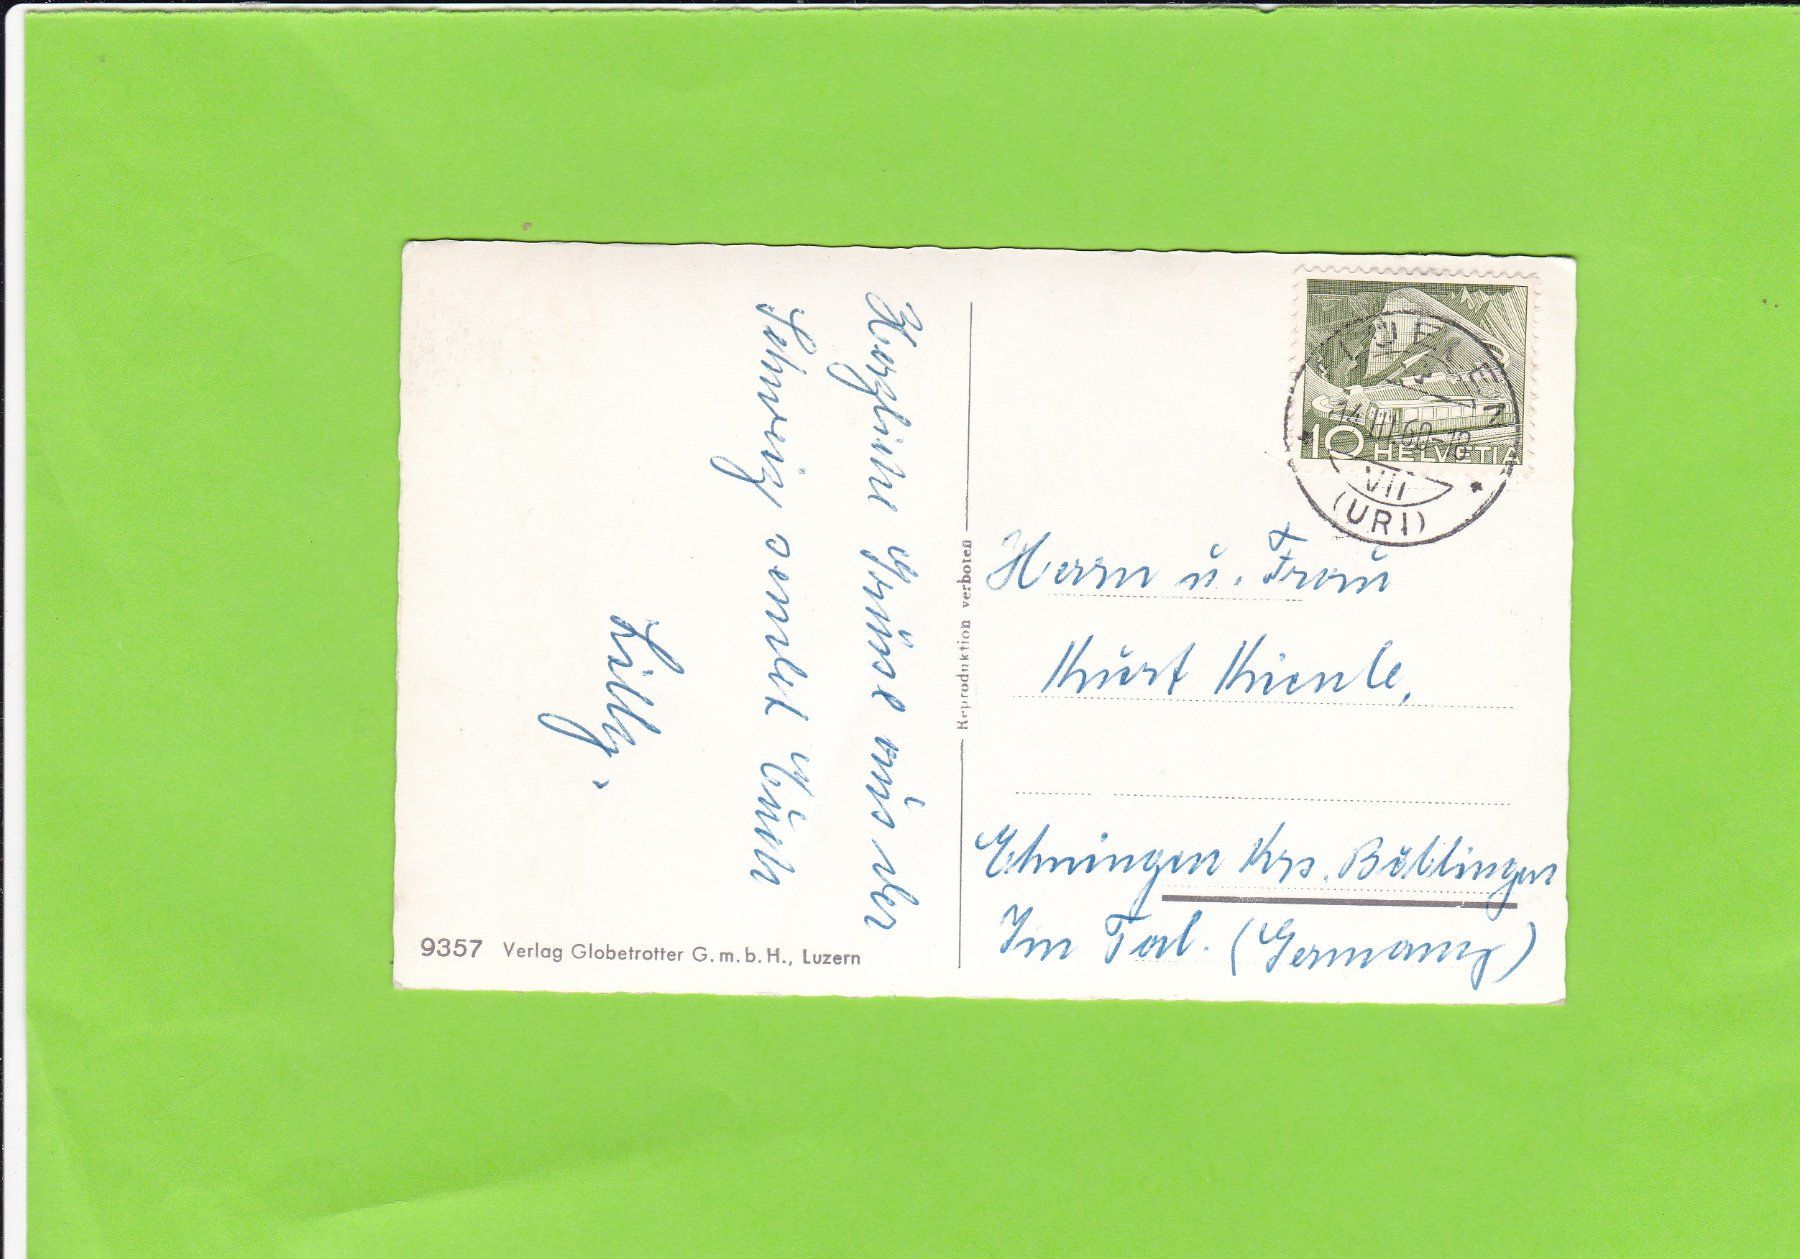 Herzliche Grüsse aus der
Schweiz sendet Euch
Lilly.
9357 Verlag Globetrotter G.m.b.H., Luzern
Reproduktion verboten
FLÜELEN
14.III.60-18
VII
(URI)
10 HELVETIA
Herrn u. Frau
Kurt Kienle,
Ehningen Krs. Böblingen
Im Tal. (Germany)